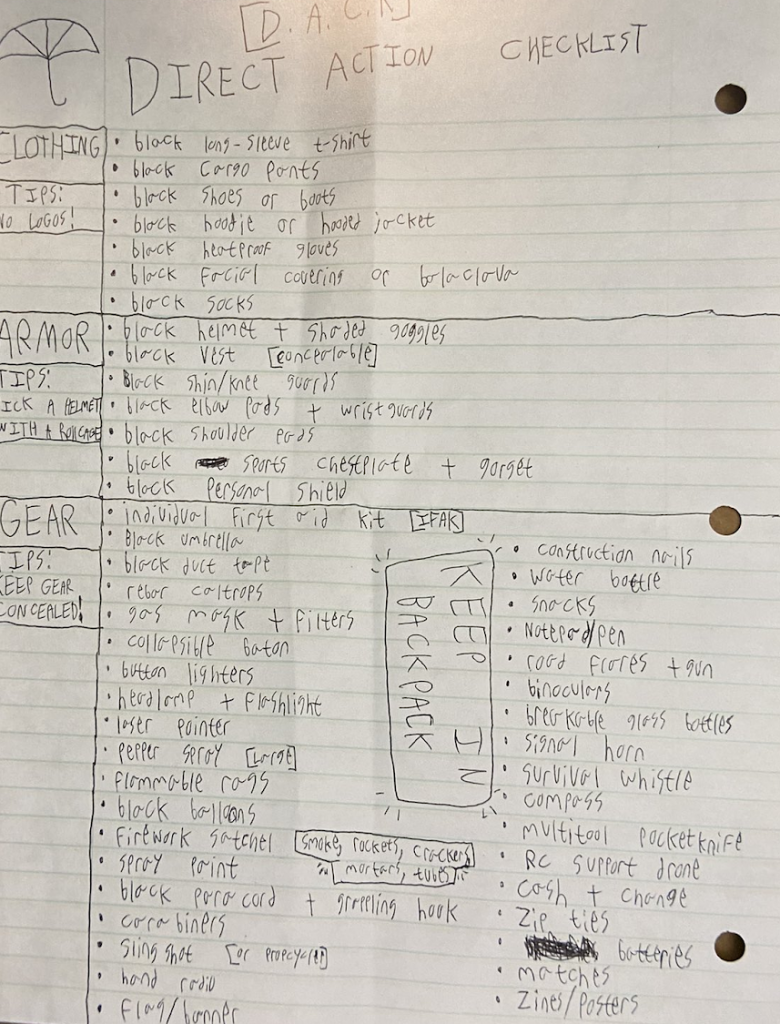 [D. A. C. K]
DIRECT ACTION CHECKLIST
CLOTHING
TIPS:
NO LOGOS!
• black long-sleeve t-shirt
• black cargo pants
• black shoes or boots
• black hoodie or hooded jacket
• black heatproof gloves
• black facial covering or balaclava
• black socks
ARMOR
TIPS:
ICK A HELMET
WITH A ROLLCAGE
• black helmet + shaded goggles
• black vest [concealable]
• Black shin/knee guards
• black elbow pads + wristguards
• black shoulder pads
• black sports chestplate + gorget
• black personal shield
GEAR
TIPS:
KEEP GEAR
CONCEALED!
• individual first aid kit [IFAK]
• Black umbrella
• black duct tape
• rebar caltrops
• gas mask + filters
• collapsible baton
• button lighters
• headlamp + flashlight
• laser pointer
• pepper spray [large]
• flammable rags
• black balloons
• firework satchel [smoke, rockets, crackers
mortars, tubes]
• spray paint
• black paracord + grappling hook
• carabiners
• sling shot [or
• hand radio
• flag/banner
KEEP IN
BACKPACK
• construction nails
• water bottle
• snacks
• Notepad/pen
• road flares + gun
• binoculars
• breakable glass bottles
• signal horn
• survival whistle
• compass
• multitool pocketknife
• RC support drone
• cash + change
• Zip ties
• batteries
• matches
• Zines/posters